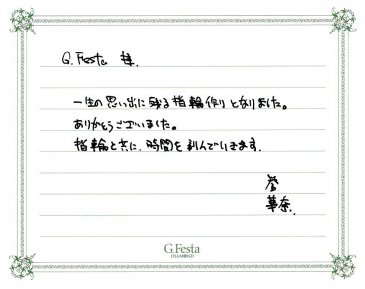 G.Festa 様
一生の思い出に残る指輪作りとなりました。
ありがとうございました。
指輪と共に、時間を刻んでいきます。
誉
華奈
G.Festa
DIAMOND